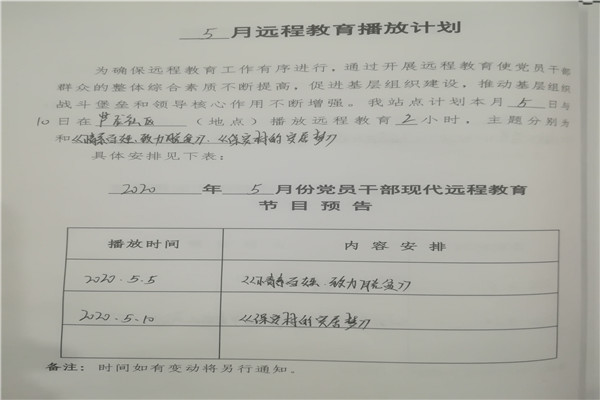 5 月远程教育播放计划
为确保远程教育工作有序进行，通过开展远程教育使党员干部
群众的整体综合素质不断提高，促进基层组织建设，推动基层组织
战斗堡垒和领导核心作用不断增强。我站点计划本月 5 日与
10 日在 社区 （地点）播放远程教育 2 小时，主题分别为
和《情系百姓、致力脱贫》、《保安村的安居梦》
具体安排见下表：
2020 年 5 月份党员干部现代远程教育
节目预告
播放时间 内容安排
2020.5.5 《情系百姓、致力脱贫》
2020.5.10 《保安村的安居梦》
备注：时间如有变动将另行通知。